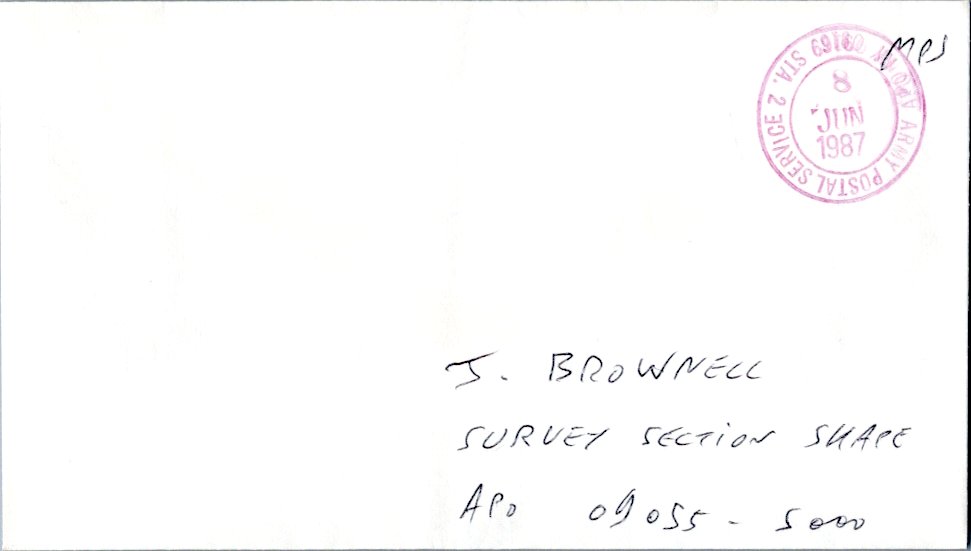 MPS
ARMY POSTAL SERVICE 2 STA. 09169 APO NY
8
JUN
1987
J. BROWNELL
SURVEY SECTION SHAPE
APO 09055-5000